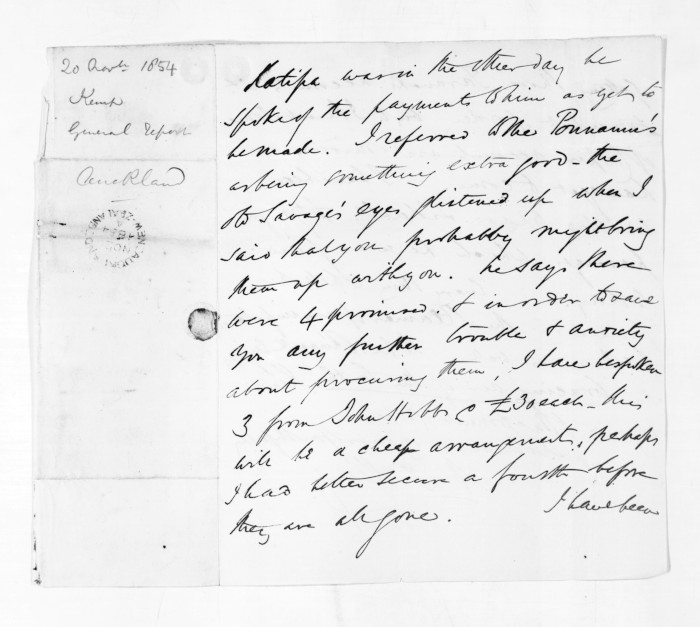 20 Novbr 1854
Kemp
General Report
Auckland
AUCKLAND
NEW-ZEALAND
NO
1854
Katipa was in the other day he
spoke of the payments to him as yet to
be made. I referred to the Pounamu's
as being something extra good - the
old Savage's eyes glistened up when I
said that you probably might bring
them up with you. he says there
were 4 promised. & in order to save
you any further trouble & anxiety
about procuring them, I have bespoken
3 from John Hobbs @ £30 each - this
will be a cheap arrangement, perhaps
I had better secure a fourth before
they are all gone. I have been